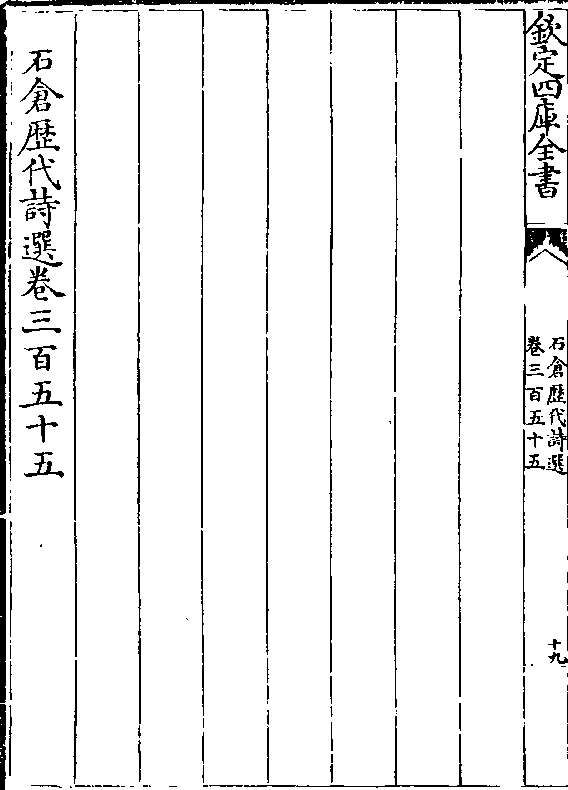 欽定四庫全書
石倉歷代詩選
卷三百五十五
十九
石倉歷代詩選卷三百五十五